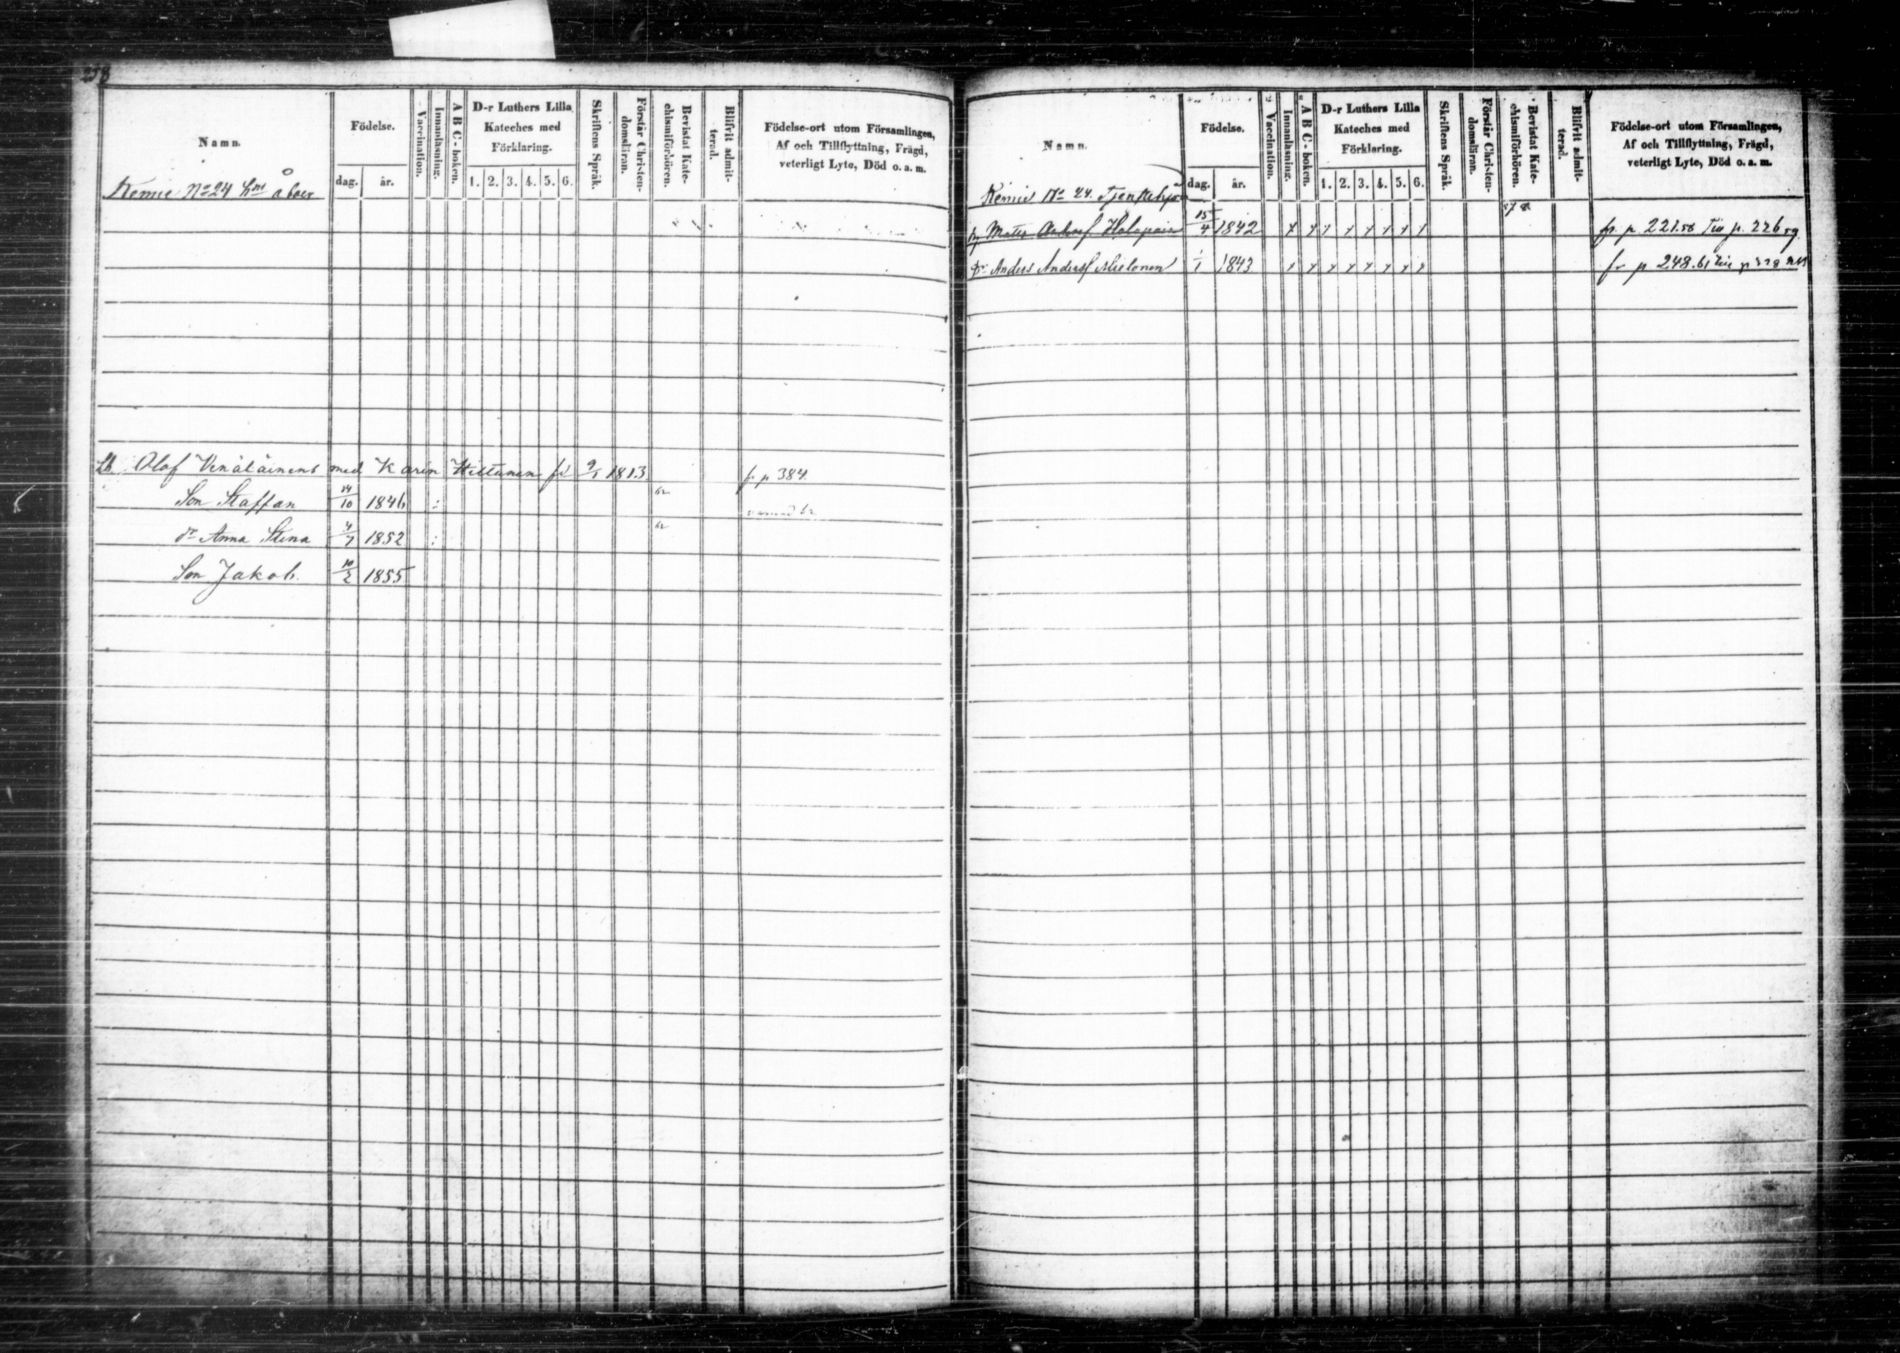 258
Namn.
Födelse.
dag. år.
Vaccination.
Innanläsning.
A B C-boken.
D-r Luthers Lilla
Kateches med
Förklaring.
1. 2. 3. 4. 5. 6.
Skriftens Språk.
Förstår Christen-
domsläran.
Bevistat Kate-
chismiförhören.
Blifvit admit-
terad.
Födelse-ort utom Församlingen,
Af och Tillflyttning, Frägd,
veterligt Lyte, Död o. a. m.
Kemie No 24 Åboer
Olof Venäläinens med Karin Hiltunen fd 9/1 1813 fr p 384.
Son Staffan 14/10 1846
dr Anna Stina 4/7 1852
Son Jakob. 10/2 1855
Namn.
Födelse.
dag. år.
Vaccination.
Innanläsning.
A B C-boken.
D-r Luthers Lilla
Kateches med
Förklaring.
1. 2. 3. 4. 5. 6.
Skriftens Språk.
Förstår Christen-
domsläran.
Bevistat Kate-
chismiförhören.
Blifvit admit-
terad.
Födelse-ort utom Församlingen,
Af och Tillflyttning, Frägd,
veterligt Lyte, Död o. a. m.
Kemie No 24.
Mats 15/4 1842 fr. p. 221.58 Till p. 226 59
dr Anders Andersf Mielonen 1/1 1843 fr p 248.61